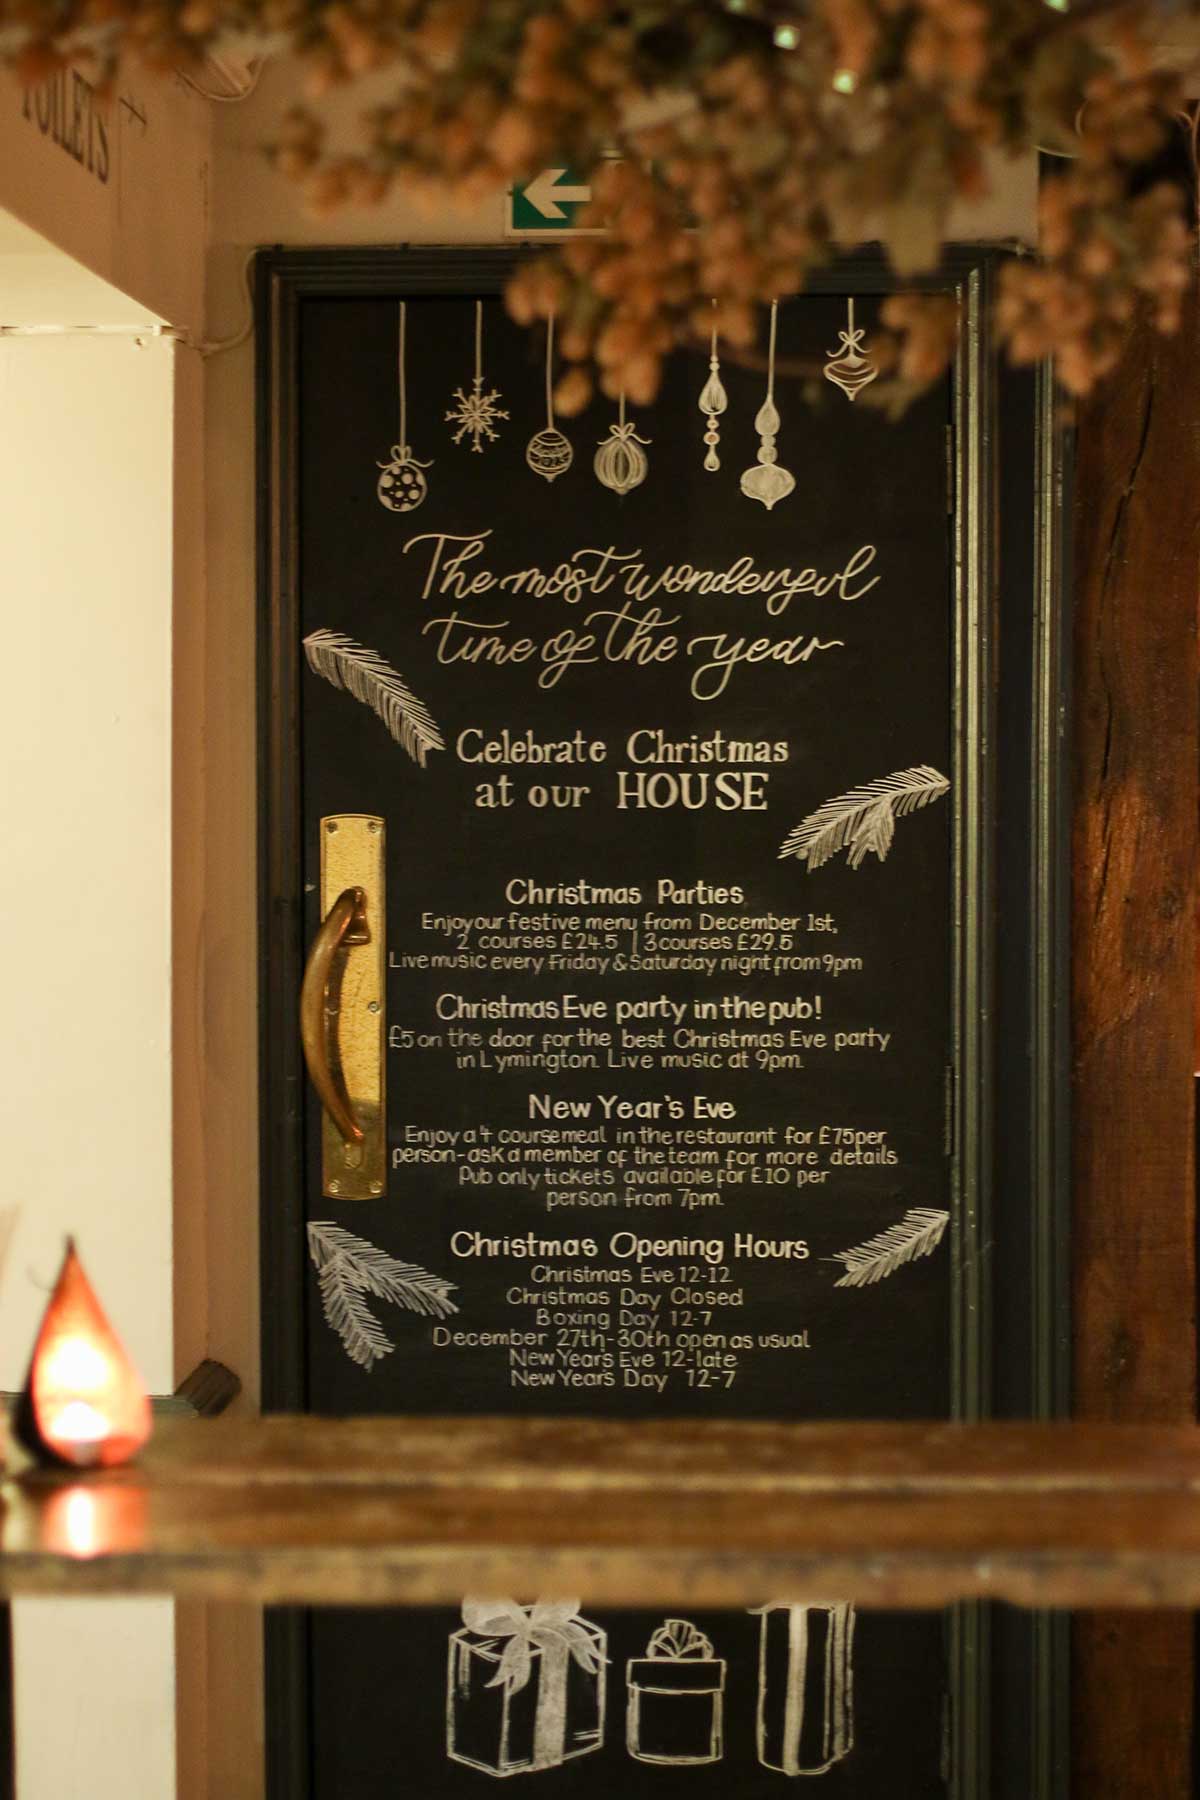 TOILETS
The most wonderful
time of the year
Celebrate Christmas
at our HOUSE
Christmas Parties
Enjoy our festive menu from December 1st,
2 courses £24.5 | 3 courses £29.5
Live music every Friday & Saturday night from 9pm
Christmas Eve party in the pub!
£5 on the door for the best Christmas Eve party
in Lymington. Live music at 9pm.
New Year's Eve
Enjoy a 4 course meal in the restaurant for £75 per
person - ask a member of the team for more details
Pub only tickets available for £10 per
person from 7pm.
Christmas Opening Hours
Christmas Eve 12-12
Christmas Day Closed
Boxing Day 12-7
December 27th-30th open as usual
New Year's Eve 12-late
New Year's Day 12-7